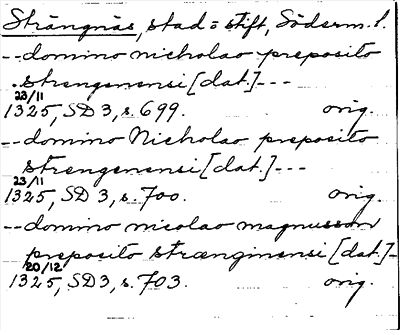 Strängnäs, stad = stift, Söderm. l.
-- domino nicholao preposito
strengenensi [dat.] ---
23/11
1325, SD 3, s. 699. orig.
-- domino Nicholao preposito
strengenensi [dat.] ---
23/11
1325, SD 3, s. 700. orig.
-- domino nicolao magnusson
preposito strænginensi [dat.] -
20/12
1325, SD 3, s. 703. orig.